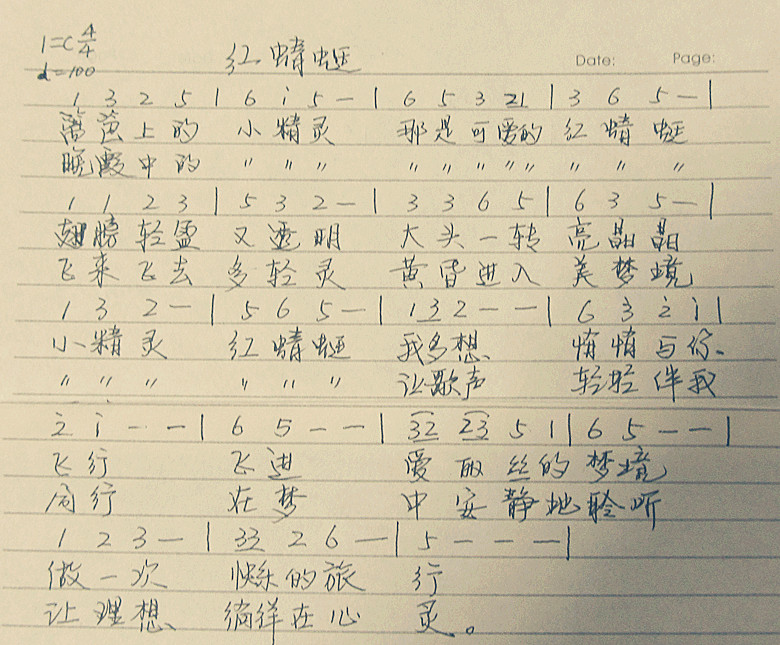 1=C 4/4
♩=100
红蜻蜓
Date: Page:
1 3 2 5 | 6 i 5 — | 6 5 3 21 | 3 6 5 — |
篱笆上的 小精灵 那是可爱的 红蜻蜓
晚霞中的 〃 〃 〃 〃 〃 〃 〃 〃 〃 〃 〃
1 1 2 3 | 5 3 2 — | 3 3 6 5 | 6 3 5 — |
翅膀轻盈 又透明 大头一转 亮晶晶
飞来飞去 多轻灵 黄昏进入 美梦境
1 3 2 — | 5 6 5 — | 13 2 — — | 6 3 2 i |
小精灵 红蜻蜓 我多想 悄悄与你、
〃 〃 〃 〃 〃 〃 让歌声 轻轻伴我
2 i — — | 6 5 — — | 32 23 5 1 | 6 5 — — |
飞行 飞进 爱丽丝的梦境
同行 在梦 中安静地聆听
1 2 3 — | 33 2 6 — | 5 — — — |
做一次 快乐的旅 行
让理想 徜徉在心 灵。